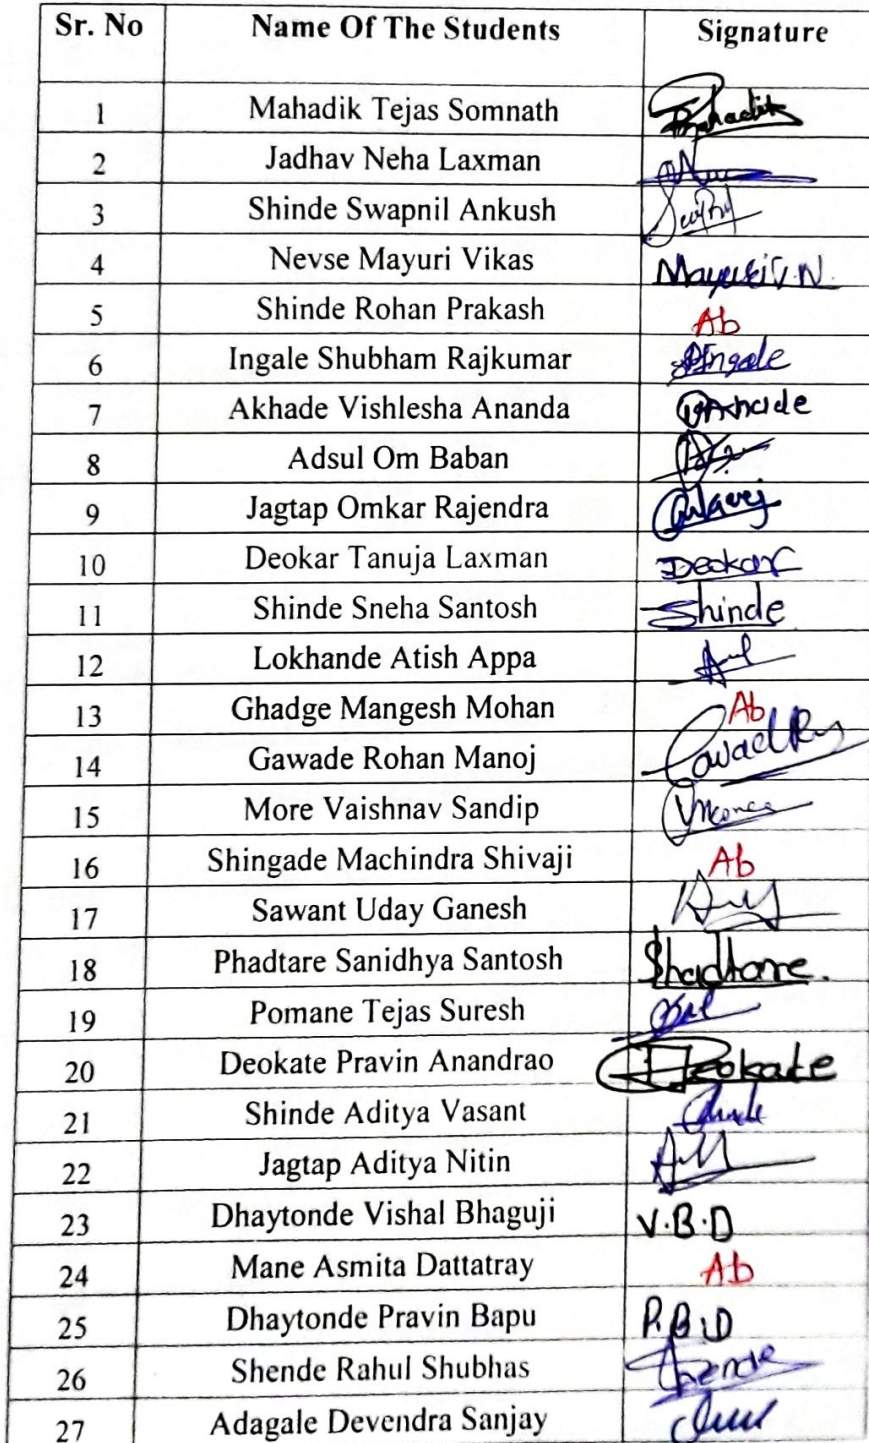 Sr. No Name Of The Students Signature
1 Mahadik Tejas Somnath
2 Jadhav Neha Laxman
3 Shinde Swapnil Ankush
4 Nevse Mayuri Vikas Mayuri V.N.
5 Shinde Rohan Prakash Ab
6 Ingale Shubham Rajkumar SIngale
7 Akhade Vishlesha Ananda VAkhade
8 Adsul Om Baban
9 Jagtap Omkar Rajendra
10 Deokar Tanuja Laxman Deokar
11 Shinde Sneha Santosh Shinde
12 Lokhande Atish Appa
13 Ghadge Mangesh Mohan Ab
14 Gawade Rohan Manoj
15 More Vaishnav Sandip
16 Shingade Machindra Shivaji Ab
17 Sawant Uday Ganesh
18 Phadtare Sanidhya Santosh
19 Pomane Tejas Suresh
20 Deokate Pravin Anandrao Deokate
21 Shinde Aditya Vasant
22 Jagtap Aditya Nitin
23 Dhaytonde Vishal Bhaguji V.B.D
24 Mane Asmita Dattatray Ab
25 Dhaytonde Pravin Bapu P.B.D
26 Shende Rahul Shubhas Shende
27 Adagale Devendra Sanjay